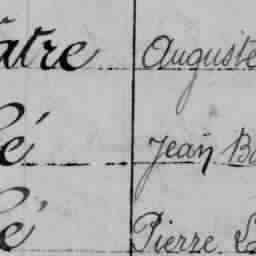 âtre Auguste
é Jean Ba
é Pierre L